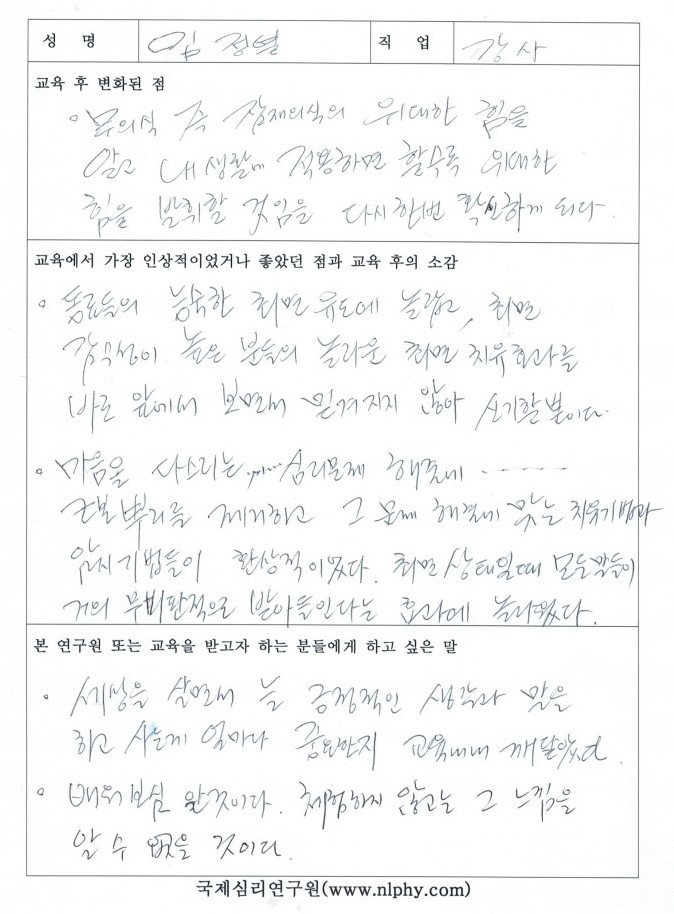 성 명 임 정별 직 업 강사
교육 후 변화된 점
무의식 즉 잠재의식의 위대한 힘을
알고 내 생활에 적용하면 할수록 위대한
힘을 발휘할 것임을 다시한번 확신하게 되다.
교육에서 가장 인상적이었거나 좋았던 점과 교육 후의 소감
동료들의 능숙한 최면 유도에 놀랐고, 최면
감수성이 높은 분들의 놀라운 최면 치유효과를
바로 앞에서 보면서 믿겨지지 않아 신기할 뿐이다.
마음을 다스리는 ...... 심리문제 해결에 ------
근본뿌리를 제거하고 그 문제 해결에 맞는 치유기법과
암시기법들이 환상적이었다. 최면 상태일때 모든말들이
거의 무비판적으로 받아들인다는 효과에 놀라웠다.
본 연구원 또는 교육을 받고자 하는 분들에게 하고 싶은 말
세상을 살면서 늘 긍정적인 생각과 말을
하고 사는게 얼마나 중요한지 교육내내 깨달았다.
배워보심 알것이다. 체험하지 않고는 그 느낌을
알 수 없을 것이다.
국제심리연구원(www.nlphy.com)